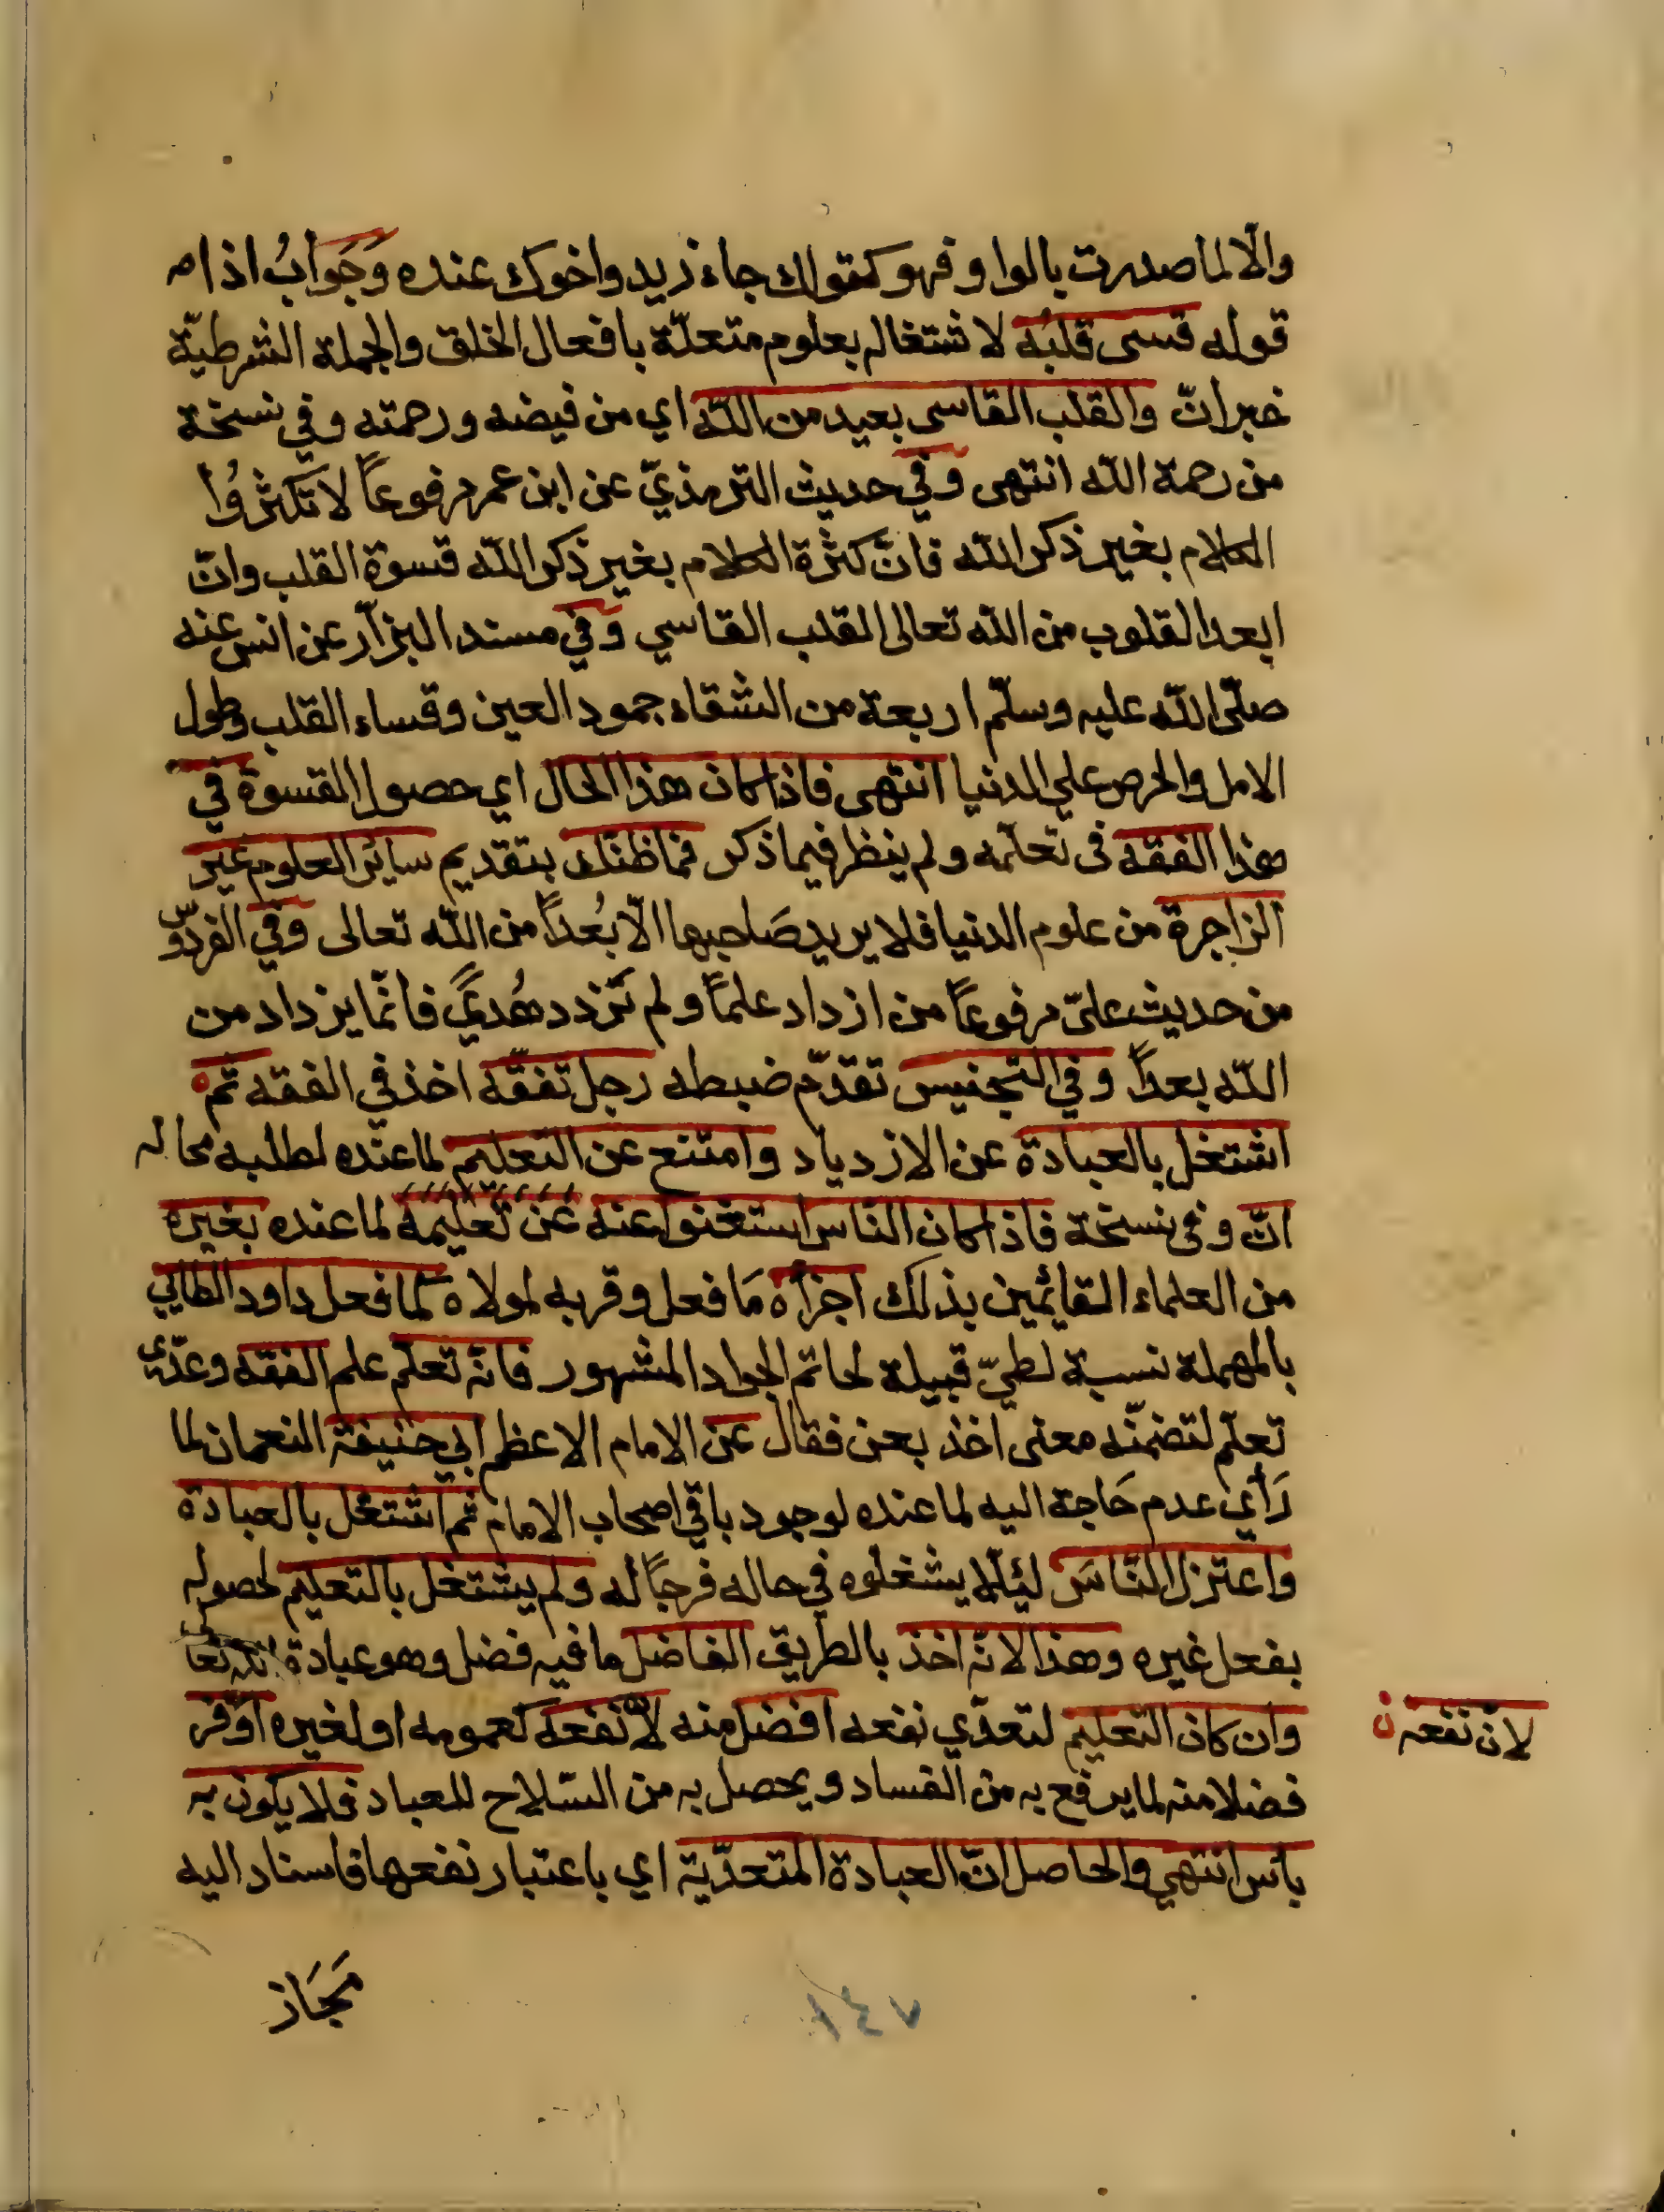 والّا لما صدرت بالواو فهو كقولك جاء زيد واخوك عنده وَجَوابُ اذا
قوله قسى قلبُه لاشتغاله بعلوم متعلّة بافعال الخلق والجملة الشرطيّة
خبرانّ والقلب القاسى بعيد من اللّه اي من فيضه ورحمته وفي نسخة
من رحمة اللّه انتهى وفي حديث الترمذيّ عن ابن عمر مرفوعاً لا تكثرُوا
الكلام بغير ذكر اللّه فانّ كثرة الكلام بغير ذكر اللّه قسوة القلب وانّ
ابعد القلوب من اللّه تعالى القلب القاسي وفي مسند البزّار عن انس عنه
صلّى اللّه عليه وسلّم اربعة من الشقاء جمود العين وقساء القلب وطول
الامل والحرص علي الدنيا انتهى فاذا كان هذا الحال اي حصول القسوة في
هذا الفقه فى تعلّمه ولم ينظر فيما ذكر فماظنّك بتقديم سائر العلوم غير
الزاجرة من علوم الدنيا فلا يريد صَاحبها الّا بُعداً من اللّه تعالى وفي الفردّوس
من حديث عليّ مرفوعاً من ازداد علماً ولم تزدد هُديً فانّما يزداد من
اللّه بعداً وفي التجنيس تقدّم ضبطه رجل تفقّه اخذ في الفقه ثمّ
اشتغل بالعبادة عن الازدياد وامتنع عن التعليم لما عنده لطلبه محاله
انّ وفى نسخة فاذا كان النّاس استغنوا عنه عن تعليمه لما عنده بغيره
من العلماء القائمين بذلك اجزأه مَا فعل وقربه لمولاه كما فعل داود الطائي
بالمهملة نسبة لطيّ قبيلة لحاتم الجواد المشهور فانّه تعلّم علم الفقه وعدّى
تعلّم لتضمّنه معنى اخذ بعن فقال عن الامام الاعظم ابي حنيفة النعمان لما
رَأي عدم حَاجة اليه لما عنده لوجود باقي اصحاب الامام ثم اشتغل بالعبادة
واعتزل النّاسَ ليئلّا يشغلوه في حاله فرجاً له ولم يشتغل بالتعليم لحصوله
بفعل غيره وهذا لانّه اخذ بالطريق الفاضل ما فيه فضل وهو عبادة اللّه تعالى
وان كان التعليم لتعدّي نفعه افضل منه لانّ نفعه كعمومه اولغيره اوفر
فضلا منه لما يرفع به من الفساد ويحصل به من السّلاح للعباد فلا يكون به
بأس انتهي والحاصل انّ العبادة المتعدّية اي باعتبار نفعها فاسناد اليه
لانّ نفعه ن
مَجَاز
١٤٧